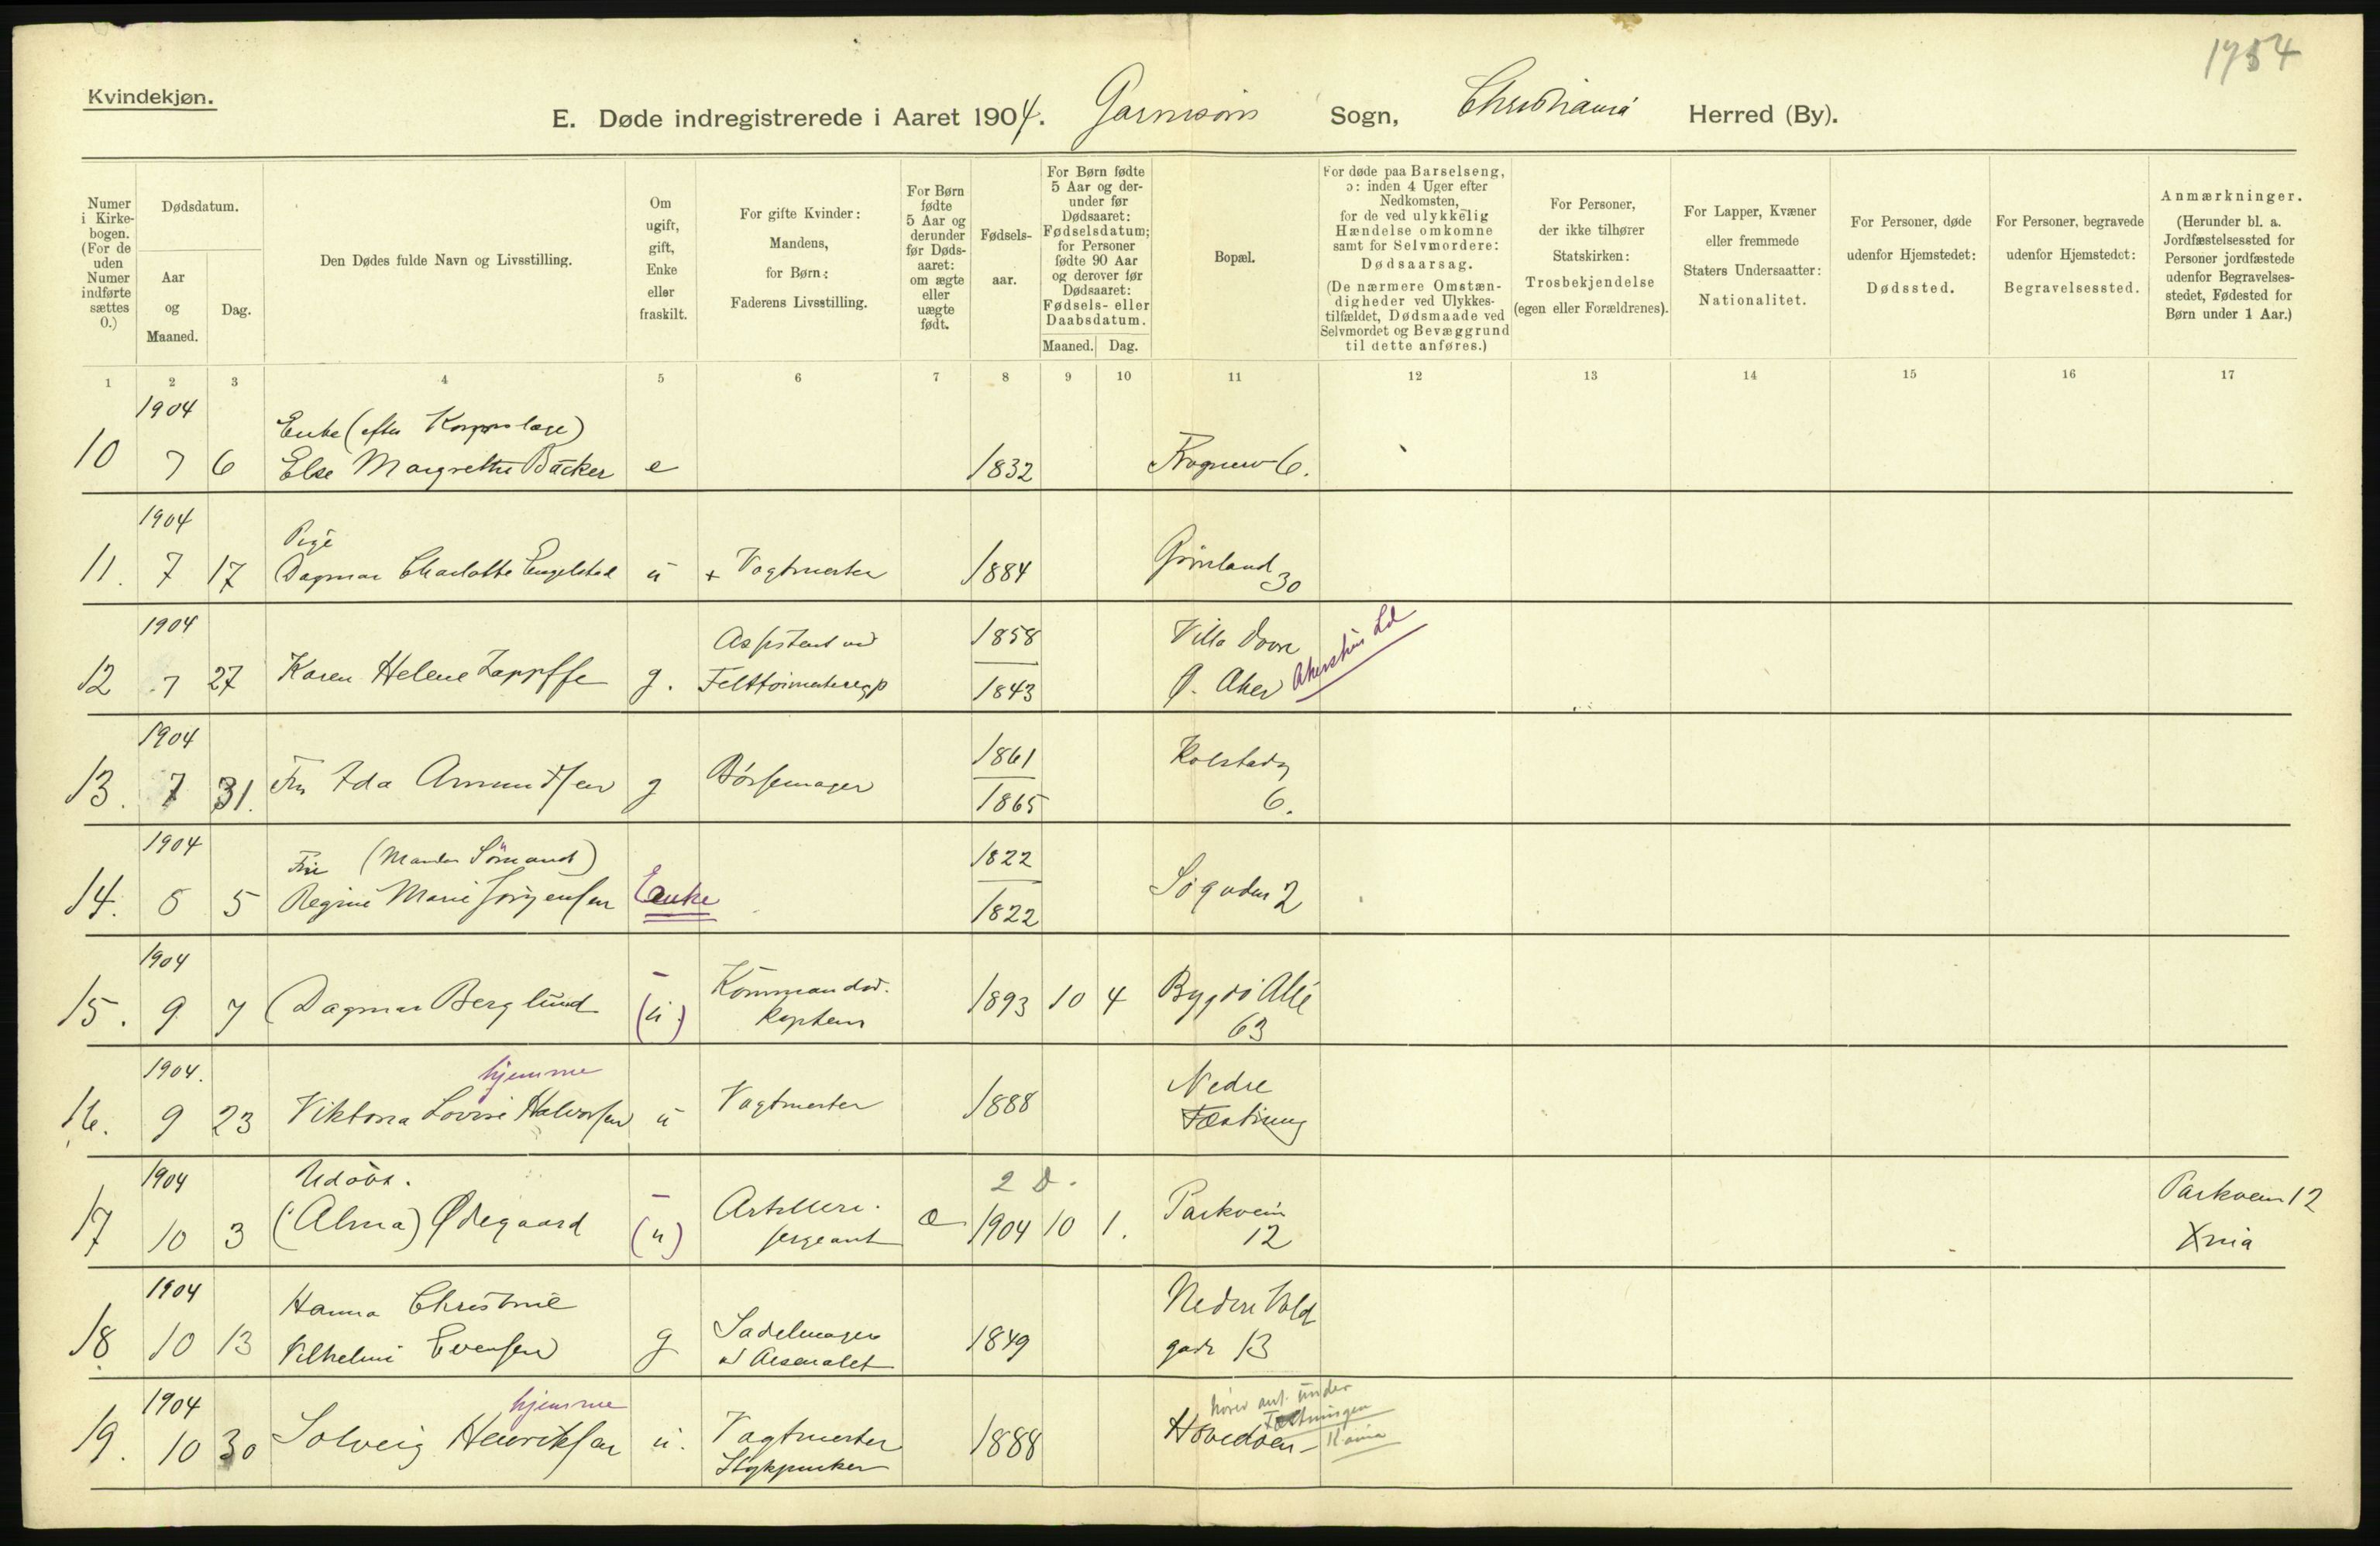 1754
Kvindekjøn.
E. Døde indregistrerede i Aaret 1904. Garnisons Sogn, Christiania Herred (By).
Numer i Kirkebogen. (For de uden Numer indførte sættes 0.)
Dødsdatum.
Aar og Maaned.
Dag.
Den Dødes fulde Navn og Livsstilling.
Om ugift, gift, Enke eller fraskilt.
For gifte Kvinder: Mandens, for Børn: Faderens Livsstilling.
For Børn fødte 5 Aar og derunder før Dødsaaret: om ægte eller uægte født.
Fødselsaar.
For Børn fødte 5 Aar og derunder før Dødsaaret: Fødselsdatum; for Personer fødte 90 Aar og derover før Dødsaaret: Fødsels- eller Daabsdatum.
Maaned. Dag.
Bopæl.
For døde paa Barselseng, ɔ: inden 4 Uger efter Nedkomsten, for de ved ulykkelig Hændelse omkomne samt for Selvmordere: Dødsaarsag. (De nærmere Omstændigheder ved Ulykkestilfældet, Dødsmaade ved Selvmordet og Bevæggrund til dette anføres.)
For Personer, der ikke tilhører Statskirken: Trosbekjendelse (egen eller Forældrenes).
For Lapper, Kvæner eller fremmede Staters Undersaatter: Nationalitet.
For Personer, døde udenfor Hjemstedet: Dødssted.
For Personer, begravede udenfor Hjemstedet: Begravelsessted.
Anmærkninger. (Herunder bl. a. Jordfæstelsessted for Personer jordfæstede udenfor Begravelsesstedet, Fødested for Børn under 1 Aar.)
1 2 3 4 5 6 7 8 9 10 11 12 13 14 15 16 17
1904
Enke (efter Korpslæge)
10 7 6 Else Margrethe Bäcker e 1832 6.
1904
Pige
11. 7 17 Dagmar Charlotte Engelstad u + Vagtmester 1884 Grønland 30
1904
Assistent ved 1858 Villa
12 7 27 Karen Helene Zappffe g. 1843 Ø. Aker Akershus
1904
1861 Kolstadg
13. 7 31. Fru Ida Amundsen g Børsemager 1865 6.
1904
Fru (Manden Sømand) 1822
14. 8 5 Regine Marie Jørgensen Enke 1822 Søgaden 2
1904
15. 9 7 Dagmar Berglund (u.) Kommandør. Kaptein 1893 10 4 Bygdø Allé 63
1904. hjemme
16. 9 23 Viktoria Lovise Halvorsen u Vagtmester 1888 Nedre Fæstning
1904 Udøbt. 2 D.
17 10 3 (Alma) Ødegaard (u) Artilleri sergeant æ 1904 10 1. Parkvein 12 Parkvein 12 Xnia
1904
18 10 13 Hanna Christine Vilhelmine Evensen g Sadelmager v/ Arsenalet 1849 Nedre Vold gade 13
1904 hjemme
hører under Fæstningen Kania
19. 10 30 Solveig Henriksen u. Vagtmester 1888 Hovedøen